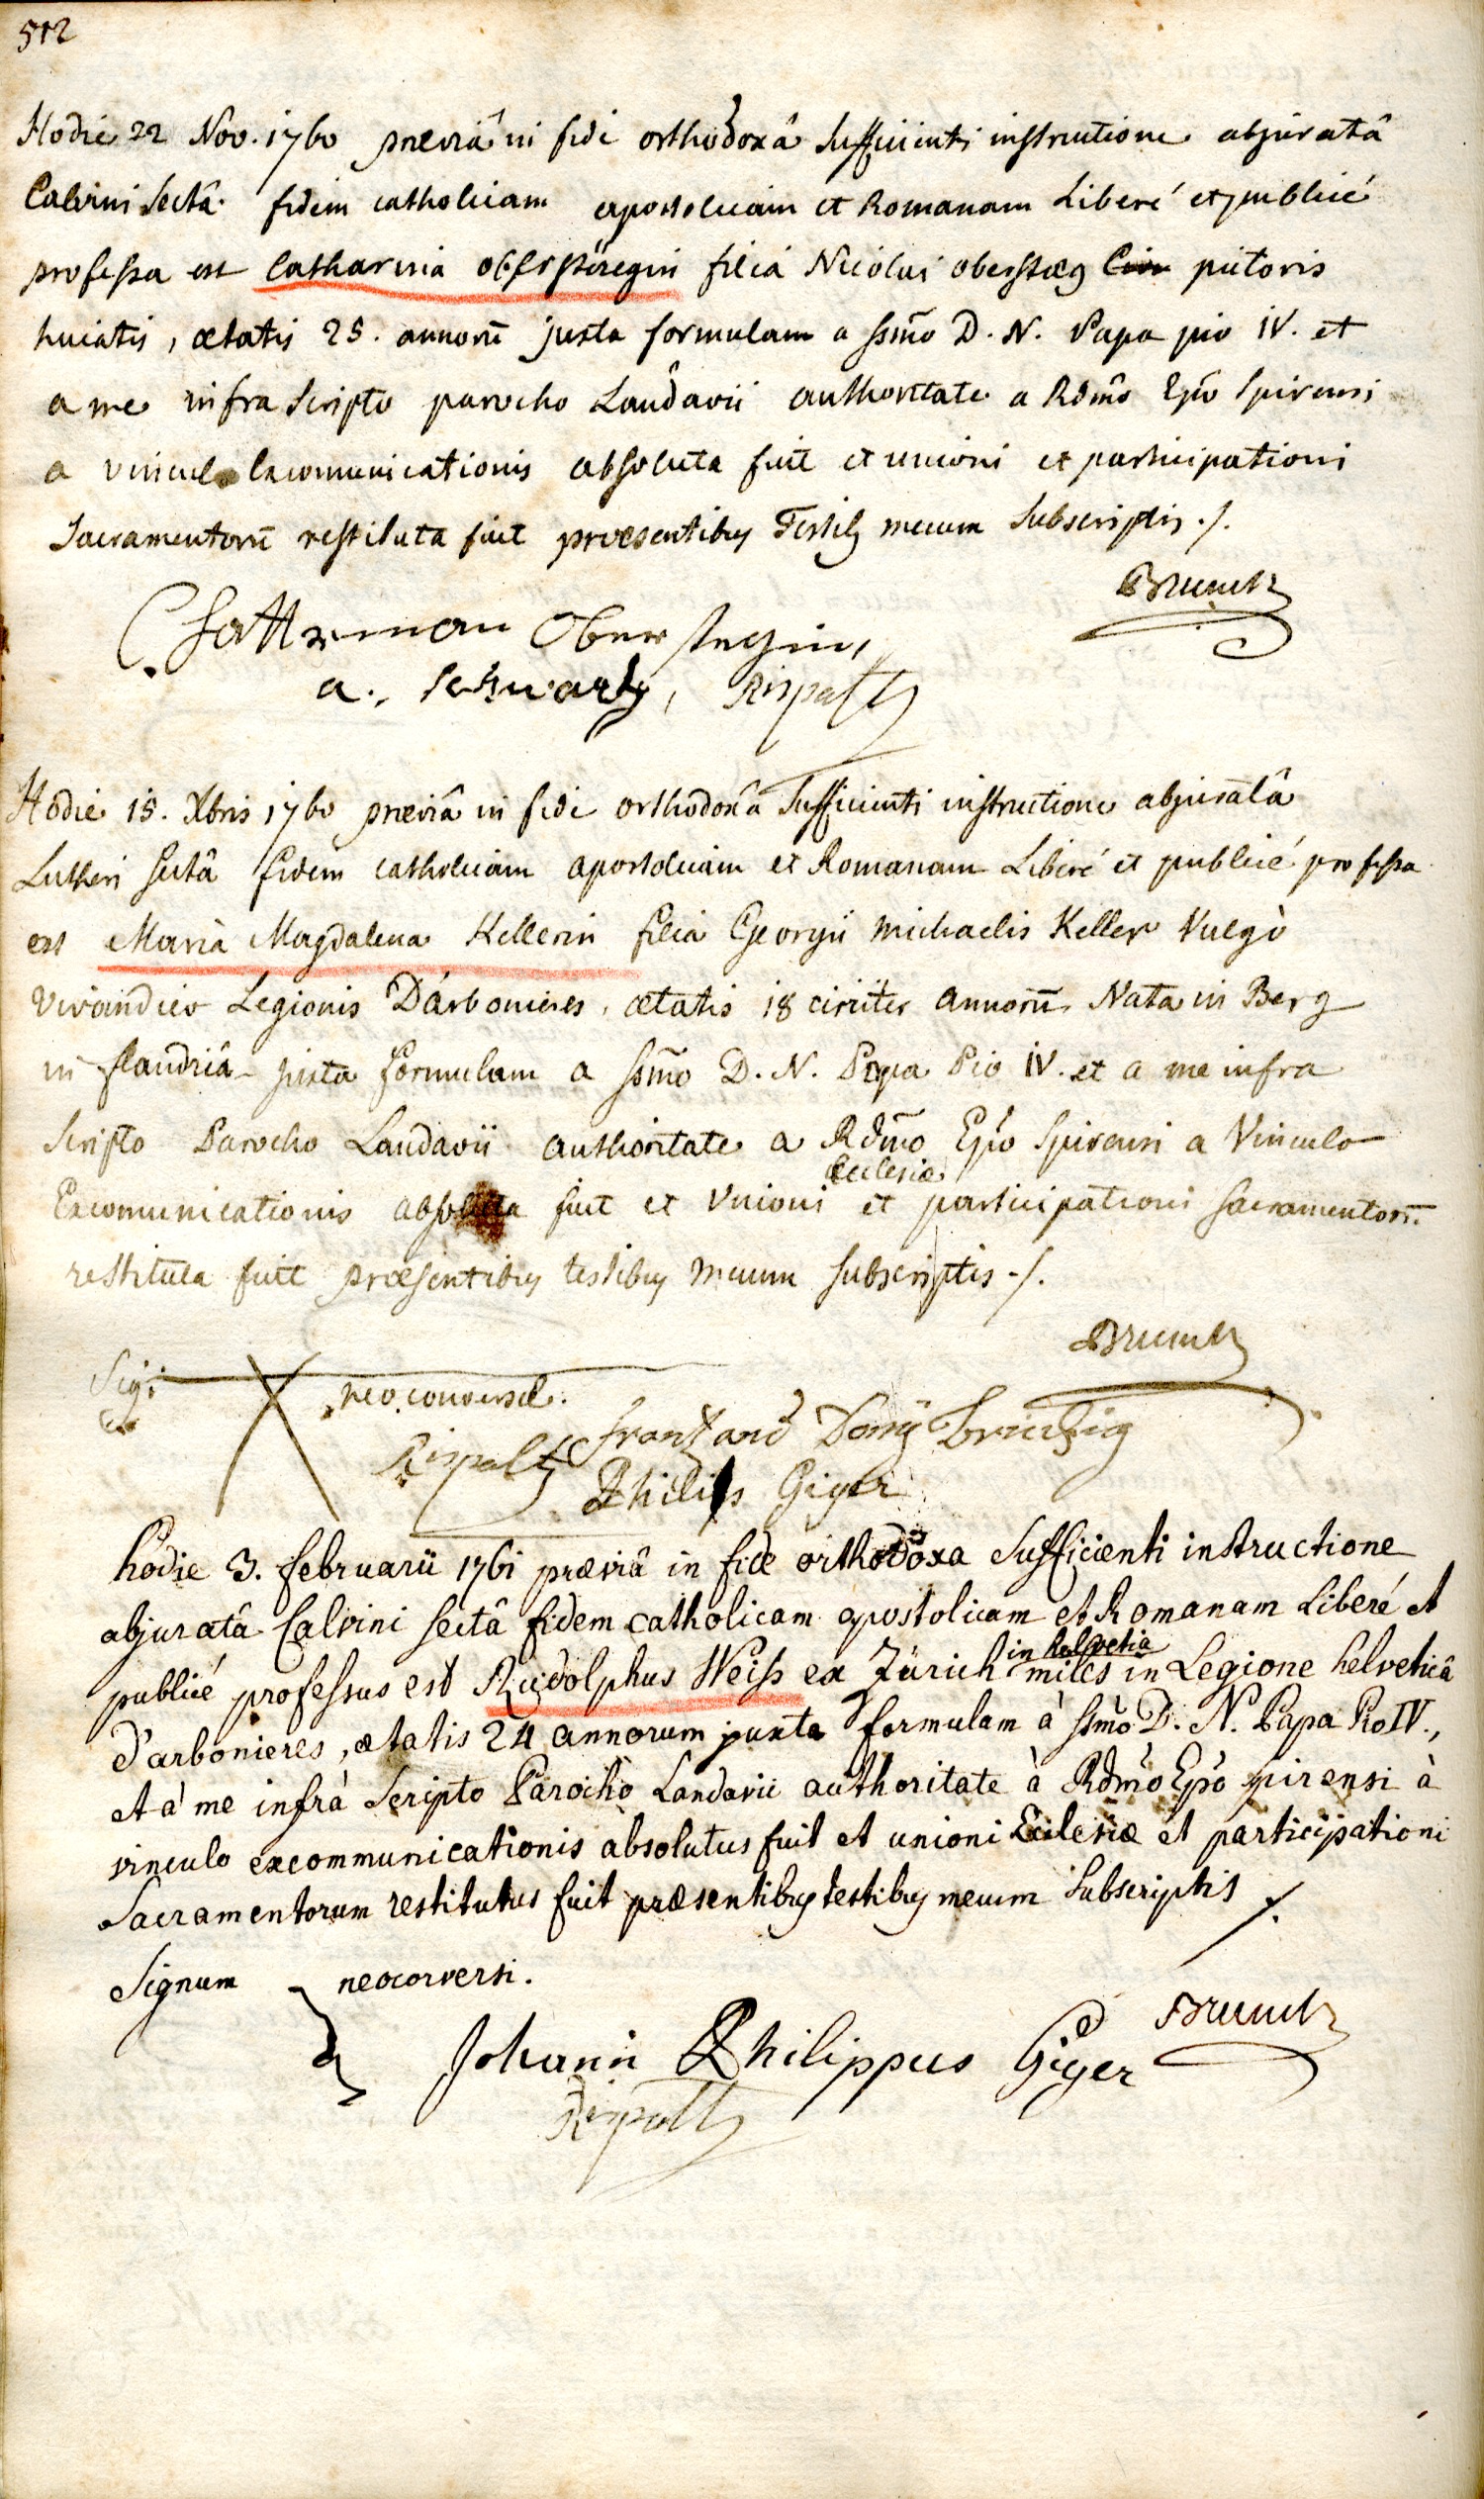 512
Hodie 22 Nov. 1760 præviâ in fide orthodoxâ sufficienti instructione abjuratâ
Calvini sectâ fidem catholicam apostolicam et Romanam Liberé et publicé
professa est Catharina Oberstægin filia Nicolai oberstæg Civ pictoris
huiatis, ætatis 25. annorū juxta formulam a ssm̄o D. N. Papa pio IV. et
a me infra scripto parocho Landavii authoritate a Rdm̄o Ep̄o Spirensi
a vinculo Excomunicationis absoluta fuit et unioni et participationi
Sacramentorū restituta fuit præsentibus Testib9 mecum subscriptis ./.
Brunck
Cathrinan Ober stegin,
a. schwartz, Rispaltz
Hodie 15. Xbris 1760 præviâ in fide orthodoxâ sufficienti instructione abjuratâ
Lutheri sectâ fidem catholicam apostolicam et Romanam Liberé et publicé professa
est Maria Magdalena Kellerin filia Georgii michaelis Keller Vulgò
vivandier Legionis Darbonieres, ætatis 18 circiter annorū Nata in Berg
in flandriâ juxta formulam a ssm̄o D. N. Papa Pio IV. et a me infra
scripto Parocho Landavii authoritate a Rdm̄o Ep̄o Spirensi a Vinculo
Excomunicationis absoluta fuit et Vnioni Ecclesiæ et participationi sacramentorū
restituta fuit præsentibus testibus mecum subscriptis ./.
Brunck
Sig: X neo conversæ.
Rispaltz
Philips Giger
hodie 3. februarii 1761 præviâ in fide orthodoxa sufficienti instructione
abjuratâ Calvini sectâ fidem catholicam apostolicam et Romanam Liberé et
publicé professus est Rudolphus Weiss ex Zürich in helvetia miles in Legione helveticâ
d'arbonieres, ætatis 24 annorum juxta formulam à ssm̄o D. N. Papa Pio IV.,
et à me infrà scripto Parocho Landavii authoritate à Rdm̄o Ep̄o spirensi à
vinculo excommunicationis absolutus fuit et unioni Ecclesiæ et participationi
Sacramentorum restitutus fuit præsentibus testibus mecum subscriptis ./.
Signum neoconversi.
Brunck
Johann Philippus Giger
Rispaltz